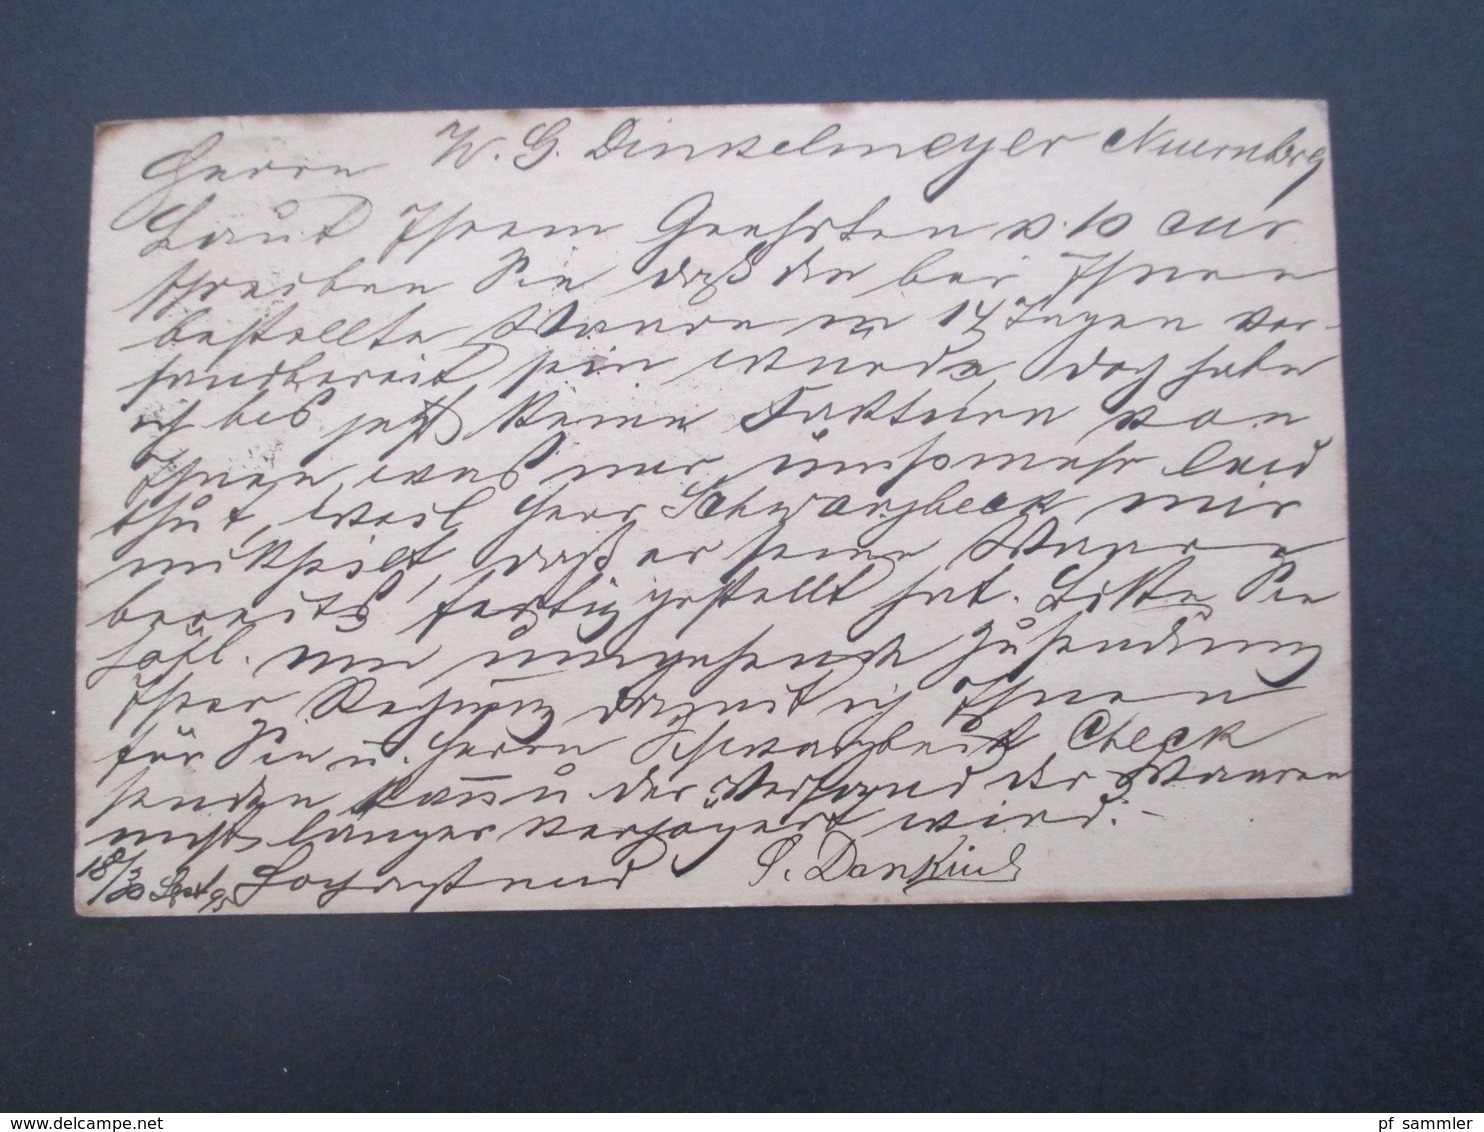 Herrn W. G. Dinkelmeyer Nuernberg
Laut Ihrem Geehrten v. 10 cur
schreiben Sie daß die bei Ihnen
bestellte Waare in 14 Tagen ver-
sandbereit sein würde, doch habe
ich bis jetzt keine Fakturen von
Ihnen, was mir umsomehr leid
thut, weil Herr Schwarzbeck mir
mittheilt, daß er seine Waare
bereits fertig gestellt hat. Bitte Sie
höfl. um umgehende Zusendung
Ihrer Rechnung damit ich Ihnen
für Sie u. Herrn Schwarzbeck Check
senden kann u. der Versand der Waaren
nicht länger verzögert wird.-
18/30 Sept 95 Hochachtend S.
www.delcampe.net
pf_sammler